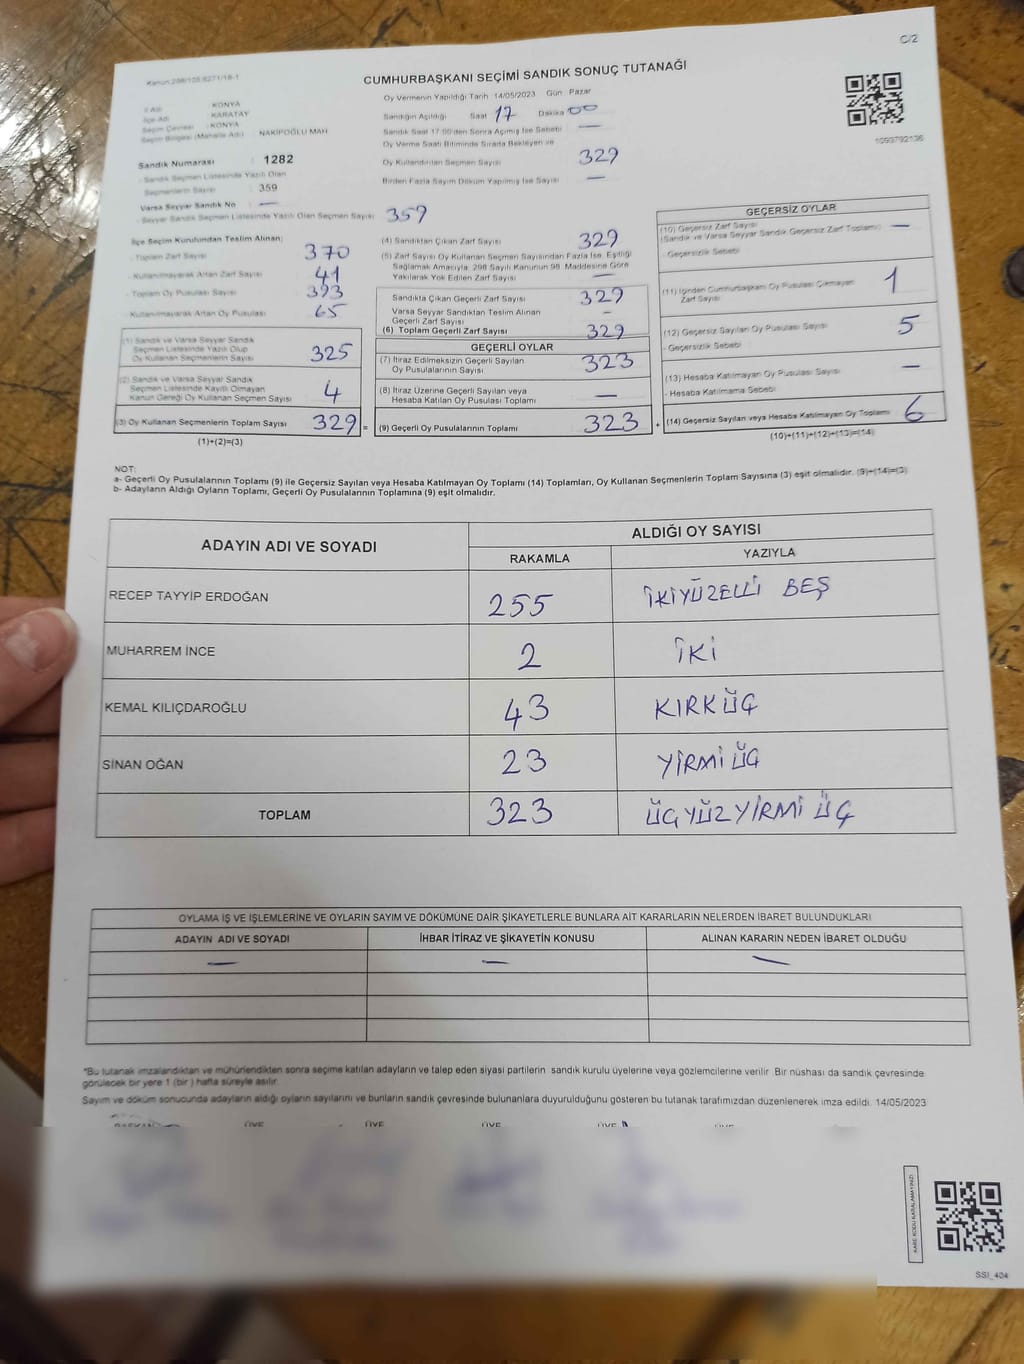 C/2
Kanun:298/105 6271/18-1
CUMHURBAŞKANI SEÇİMİ SANDIK SONUÇ TUTANAĞI
İl Adı : KONYA
İlçe Adı : KARATAY
Seçim Çevresi : KONYA
Seçim Bölgesi (Mahalle Adı) : NAKİPOĞLU MAH.
Sandık Numarası : 1282
- Sandık Seçmen Listesinde Yazılı Olan
Seçmenlerin Sayısı : 359
Varsa Seyyar Sandık No : —
- Seyyar Sandık Seçmen Listesinde Yazılı Olan Seçmen Sayısı: 359
Oy Vermenin Yapıldığı Tarih :14/05/2023 Gün : Pazar
Sandığın Açıldığı Saat 17 Dakika 00
Sandık Saat 17:00'den Sonra Açılmış İse Sebebi : —
Oy Verme Saati Bitiminde Sırada Bekleyen ve
Oy Kullandırılan Seçmen Sayısı 329
Birden Fazla Sayım Döküm Yapılmış İse Sayısı —
1093792136
İlçe Seçim Kurulundan Teslim Alınan;
- Toplam Zarf Sayısı 370
- Kullanılmayarak Artan Zarf Sayısı 41
- Toplam Oy Pusulası Sayısı 393
- Kullanılmayarak Artan Oy Pusulası 65
(1) Sandık ve Varsa Seyyar Sandık
Seçmen Listesinde Yazılı Olup
Oy Kullanan Seçmenlerin Sayısı 325
(2) Sandık ve Varsa Seyyar Sandık
Seçmen Listesinde Kayıtlı Olmayan
Kanun Gereği Oy Kullanan Seçmen Sayısı 4
(3) Oy Kullanan Seçmenlerin Toplam Sayısı 329 =
(1)+(2)=(3)
(4) Sandıktan Çıkan Zarf Sayısı 329
(5) Zarf Sayısı Oy Kullanan Seçmen Sayısından Fazla İse, Eşitliği
Sağlamak Amacıyla; 298 Sayılı Kanunun 98. Maddesine Göre
Yakılarak Yok Edilen Zarf Sayısı —
Sandıkta Çıkan Geçerli Zarf Sayısı 329
Varsa Seyyar Sandıktan Teslim Alınan
Geçerli Zarf Sayısı -
(6) Toplam Geçerli Zarf Sayısı 329
GEÇERLİ OYLAR
(7) İtiraz Edilmeksizin Geçerli Sayılan
Oy Pusulalarının Sayısı 323
(8) İtiraz Üzerine Geçerli Sayılan veya
Hesaba Katılan Oy Pusulası Toplamı —
(9) Geçerli Oy Pusulalarının Toplamı 323 +
GEÇERSİZ OYLAR
(10) Geçersiz Zarf Sayısı
(Sandık ve Varsa Seyyar Sandık Geçersiz Zarf Toplamı) —
-Geçersizlik Sebebi
(11) İçinden Cumhurbaşkanı Oy Pusulası Çıkmayan
Zarf Sayısı 1
(12) Geçersiz Sayılan Oy Pusulası Sayısı 5
- Geçersizlik Sebebi
(13) Hesaba Katılmayan Oy Pusulası Sayısı —
- Hesaba Katılmama Sebebi
(14) Geçersiz Sayılan veya Hesaba Katılmayan Oy Toplamı 6
(10)+(11)+(12)+(13)=(14)
NOT:
a- Geçerli Oy Pusulalarının Toplamı (9) ile Geçersiz Sayılan veya Hesaba Katılmayan Oy Toplamı (14) Toplamları, Oy Kullanan Seçmenlerin Toplam Sayısına (3) eşit olmalıdır. (9)+(14)=(3)
b- Adayların Aldığı Oyların Toplamı, Geçerli Oy Pusulalarının Toplamına (9) eşit olmalıdır.
ADAYIN ADI VE SOYADI ALDIĞI OY SAYISI
RAKAMLA YAZIYLA
RECEP TAYYİP ERDOĞAN 255 İKİYÜZELLİ BEŞ
MUHARREM İNCE 2 İKİ
KEMAL KILIÇDAROĞLU 43 KIRKÜÇ
SİNAN OĞAN 23 YİRMİ ÜÇ
TOPLAM 323 ÜÇYÜZYİRMİ ÜÇ
OYLAMA İŞ VE İŞLEMLERİNE VE OYLARIN SAYIM VE DÖKÜMÜNE DAİR ŞİKAYETLERLE BUNLARA AİT KARARLARIN NELERDEN İBARET BULUNDUKLARI
ADAYIN ADI VE SOYADI İHBAR İTİRAZ VE ŞİKAYETİN KONUSU ALINAN KARARIN NEDEN İBARET OLDUĞU
— — —
*Bu tutanak imzalandıktan ve mühürlendikten sonra seçime katılan adayların ve talep eden siyasi partilerin sandık kurulu üyelerine veya gözlemcilerine verilir .Bir nüshası da sandık çevresinde
görülecek bir yere 1 (bir ) hafta süreyle asılır.
Sayım ve döküm sonucunda adayların aldığı oyların sayılarını ve bunların sandık çevresinde bulunanlara duyurulduğunu gösteren bu tutanak tarafımızdan düzenlenerek imza edildi. 14/05/2023
BAŞKAN ÜYE ÜYE ÜYE ÜYE ÜYE
KARE KODU KARALAMAYINIZ!
SSI_404